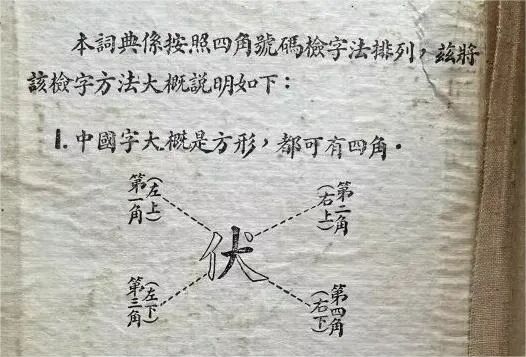 本詞典係按照四角號碼檢字法排列，茲將
該檢字方法大概説明如下：
1.中國字大概是方形，都可有四角．
第一角
(左上)
第二角
(右上)
伏
第三角
(左下)
第四角
(右下)